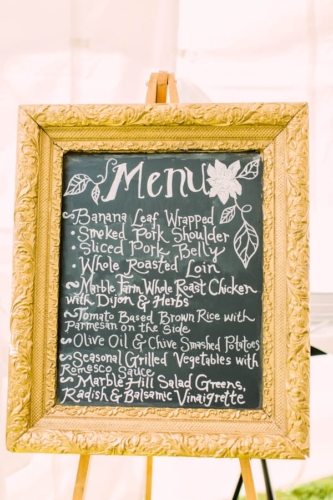 Menu
~Banana Leaf Wrapped
• Smoked Pork Shoulder
• Sliced Pork Belly
• Whole Roasted Loin
~Marble Farm Whole Roast Chicken
with Dijon & Herbs
~Tomato Based Brown Rice with
Parmesan on the side
~Olive Oil & Chive Smashed Potatoes
~Seasonal Grilled Vegetables with
Romesco Sauce
~Marble Hill Salad Greens,
Radish & Balsamic Vinaigrette